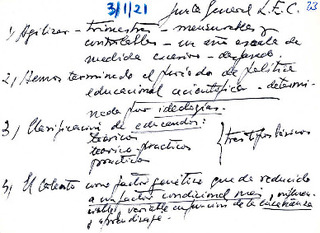 3/1/21 Junta General L.E.C. 23
1) Agilizar - trimestral - mensurables y
controlables - un año escala de
medida excesivo -
2) Hemos terminado el período de política
educacional acientífica - determi-
nada por ideologías.
3) Clasificación de educandos:
teóricos
teórico-prácticos
prácticos
tres tipos básicos
4) El talento como factor genético queda reducido
a un factor condicional más,
variable en función de la enseñanza
y aprendizaje.